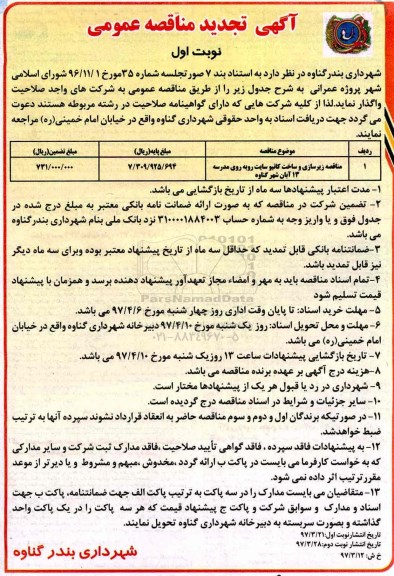 آگهی تجدید مناقصه عمومی
نوبت اول
شهرداری بندرگناوه در نظر دارد به استناد بند ۷ صورتجلسه شماره ۳۵مورخ ۹۶/۱۱/۱ شورای اسلامی
شهر پروژه عمرانی به شرح جدول زیر را از طریق مناقصه عمومی به شرکت های واجد صلاحیت
واگذار نماید.لذا از کلیه شرکت هایی که دارای گواهینامه صلاحیت در رشته مربوطه هستند دعوت
می گردد جهت دریافت اسناد به واحد حقوقی شهرداری گناوه واقع در خیابان امام خمینی(ره) مراجعه
نمایند.
ردیف موضوع مناقصه مبلغ پایه(ریال) مبلغ تضمین(ریال)
۱ مناقصه زیرسازی و ساخت کانیو سایت روبه روی مدرسه ۷/۳۰۹/۹۲۵/۶۹۴ ۷۳۱/۰۰۰/۰۰۰
۱۳ آبان شهر گناوه
۱- مدت اعتبار پیشنهادها سه ماه از تاریخ بازگشایی می باشد.
۲- تضمین شرکت در مناقصه که به صورت ارائه ضمانت نامه بانکی معتبر به مبلغ درج شده در
جدول فوق و یا واریز وجه به شماره حساب ۳۱۰۰۰۰۱۸۸۴۰۰۳ نزد بانک ملی بنام شهرداری بندرگناوه
می باشد.
۳-ضمانتنامه بانکی قابل تمدید که حداقل سه ماه از تاریخ پیشنهاد معتبر بوده وبرای سه ماه دیگر
نیز قابل تمدید باشد.
۴-تمام اسناد مناقصه باید به مهر و امضاء مجاز تعهدآور پیشنهاد دهنده برسد و همزمان با پیشنهاد
قیمت تسلیم شود
۵- مهلت خرید اسناد: تا پایان وقت اداری روز چهار شنبه مورخ ۹۷/۴/۶ می باشد.
۶- مهلت و محل تحویل اسناد: روز یک شنبه مورخ ۹۷/۴/۱۰ دبیرخانه شهرداری گناوه واقع در خیابان
امام خمینی(ره) می باشد.
۷- تاریخ بازگشایی پیشنهادات ساعت ۱۳ روزیک شنبه مورخ ۹۷/۴/۱۰ می باشد.
۸-هزینه درج آگهی بر عهده برنده مناقصه می باشد.
۹- شهرداری در رد یا قبول هر یک از پیشنهادها مختار است.
۱۰- سایر جزئیات و شرایط در اسناد مناقصه درج گردیده است.
۱۱- در صورتیکه برندگان اول و دوم و سوم مناقصه حاضر به انعقاد قرارداد نشوند سپرده آنها به ترتیب
ضبط خواهدشد.
۱۲- به پیشنهادات فاقد سپرده ، فاقد گواهی تأیید صلاحیت ،فاقد مدارک ثبت شرکت و سایر مدارکی
که به خواست کارفرما می بایست در پاکت ب ارائه گردد ،مخدوش ،مبهم و مشروط و یا دیرتر از موعد
مقررترتیب اثر داده نمی شود.
۱۳- متقاضیان می بایست مدارک را در سه پاکت به ترتیب پاکت الف جهت ضمانتنامه، پاکت ب جهت
اسناد و مدارک و سوابق شرکت و پاکت ج پیشنهاد قیمت که هر سه پاکت را در یک پاکت واحد
گذاشته و بصورت سربسته به دبیرخانه شهرداری گناوه تحویل نمایند.
تاریخ انتشارنوبت اول:۹۷/۳/۲۱
تاریخ انتشارنوبت دوم:۹۷/۳/۲۸
خ ش: ۹۷/۳/۱۲
شهرداری بندر گناوه
ParsNamadData
۰۲۱-۸۸۳۴۹۶۷۰-۵